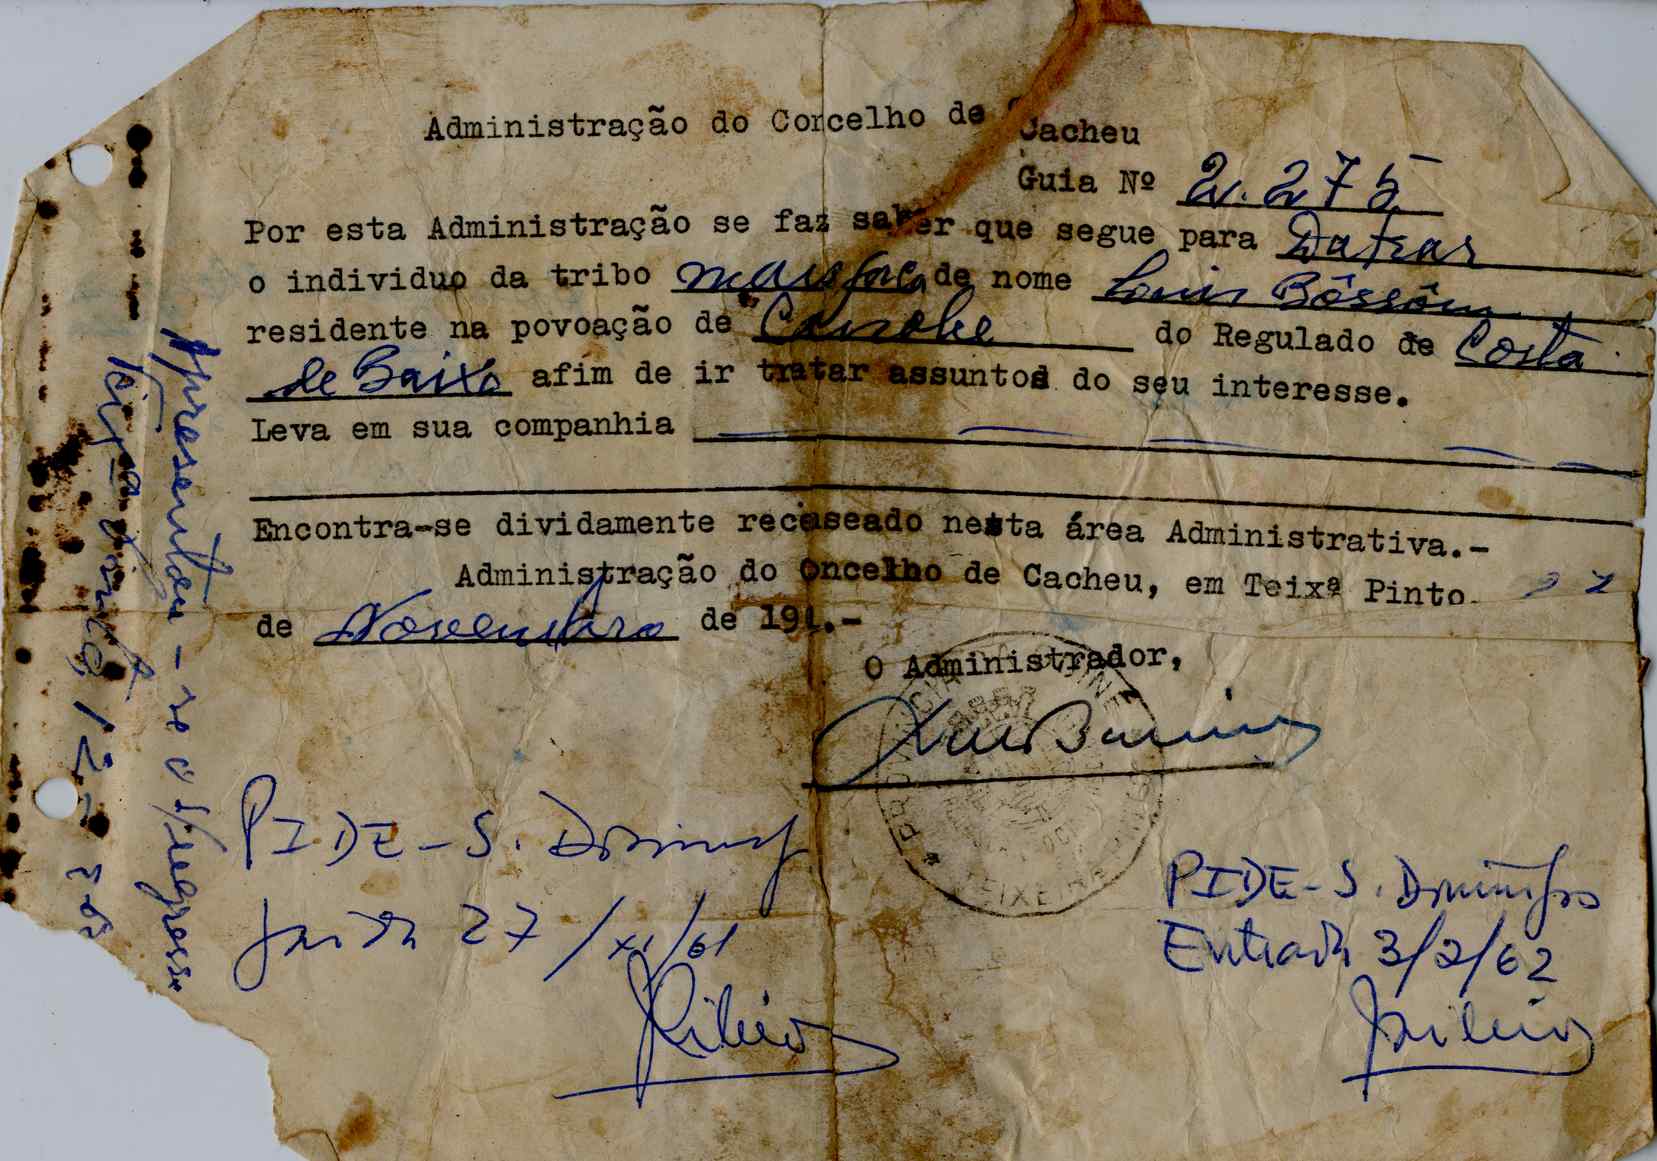 Administração do Concelho de Cacheu
Guia Nº 2.275
Por esta Administração se faz saber que segue para Dakar
o individuo da tribo de nome Louis
residente na povoação de do Regulado de Costa
de Baixo afim de ir tratar assuntos do seu interesse.
Leva em sua companhia
Encontra-se dividamente recenseado nesta área Administrativa.-
Administração do Oncelho de Cacheu, em Teixª Pinto
de Novembro de 196.-
O Administrador,
PROVINCIA GUINÉ
TEIXEIRA
PIDE-S. Domingos
Saida 27/XI/61
Ribeiro
PIDE-S. Domingos
Entrada 3/2/62
Ribeiro
Apresentou-se o regresso
Teixª Pinto